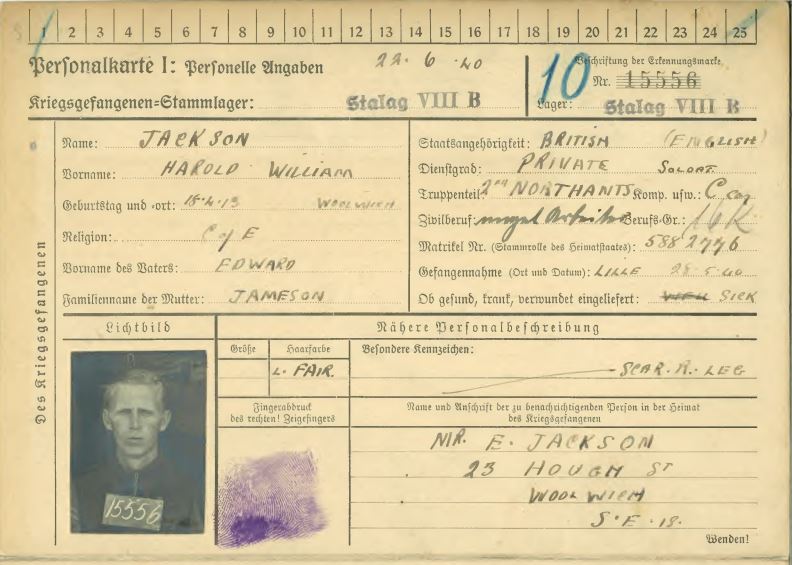 1 2 3 4 5 6 7 8 9 10 11 12 13 14 15 16 17 18 19 20 21 22 23 24 25
Personalkarte I: Personelle Angaben 22. 6 .40
Kriegsgefangenen=Stammlager: Stalag VIII B
10
Beschriftung der Erkennungsmarke
Nr. 15556
Lager: Stalag VIII B
Des Kriegsgefangenen
Name: JACKSON
Vorname: HAROLD WILLIAM
Geburtstag und =ort: 18-4-13 WOOLWICH
Religion: C of E
Vorname des Vaters: EDWARD
Familienname der Mutter: JAMESON
Staatsangehörigkeit: BRITISH (ENGLISH)
Dienstgrad: PRIVATE SOLDAT
Truppenteil: 2nd NORTHANTS Komp. usw.: C coy
Zivilberuf: Arbeiter Berufs-Gr.: 16K
Matrikel Nr. (Stammrolle des Heimatstaates): 5882776
Gefangennahme (Ort und Datum): LILLE 28-5-40
Ob gesund, krank, verwundet eingeliefert: WELL SICK
Lichtbild
15556
Nähere Personalbeschreibung
Größe Haarfarbe
L. FAIR.
Besondere Kennzeichen:
SCAR. R. LEG
Fingerabdruck
des rechten! Zeigefingers
Name und Anschrift der zu benachrichtigenden Person in der Heimat
des Kriegsgefangenen
MR. E. JACKSON
23 HOUGH ST
WOOLWICH
S.E.18.
Wenden!